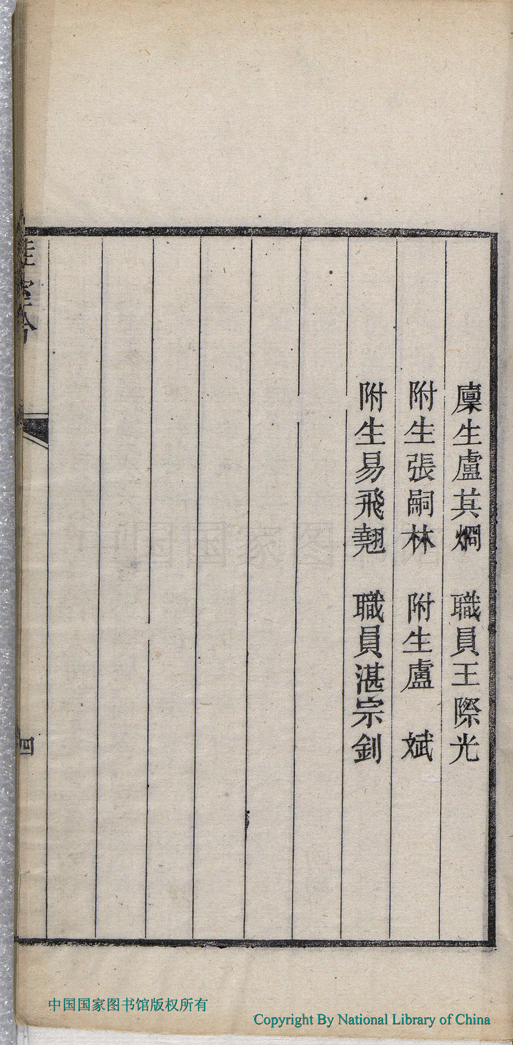 廩生盧其烱　職員王際光
附生張嗣林　附生盧　斌
附生易飛翹　職員湛宗釗
四
中国国家图书馆版权所有
Copyright By National Library of China